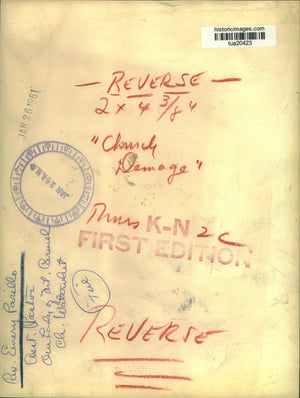 historicimages.com
tua20423
JAN 26 1961
— REVERSE —
2 x 4 3/8"
"Church
Damage"
JAN 26 A.M.
Thurs K-N 2C
FIRST EDITION
REVERSE
Rev Emery Parillo
Asst. Pastor
Our Lady of Mt. Carmel
Ch. Watervliet